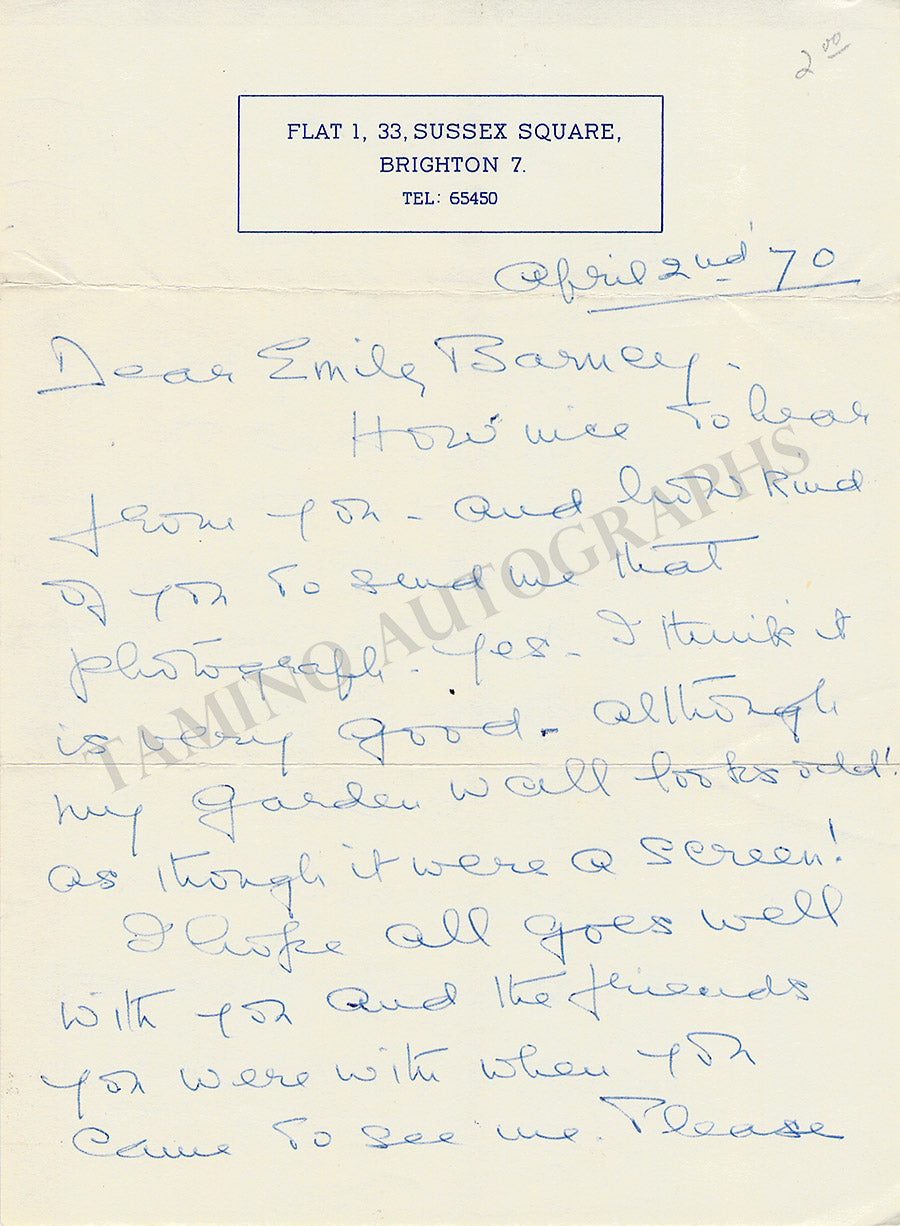 2 00
FLAT 1, 33, SUSSEX SQUARE,
BRIGHTON 7.
TEL: 65450
April 2nd '70
Dear Emily Barney.
How nice to hear
from you - and how kind
of you to send me that
photograph. Yes - I think it
is very good - although
my garden wall looks odd!
as though it were a screen!
I hope all goes well
with you and the friends
you were with when you
came to see me. Please
TAMINO AUTOGRAPHS